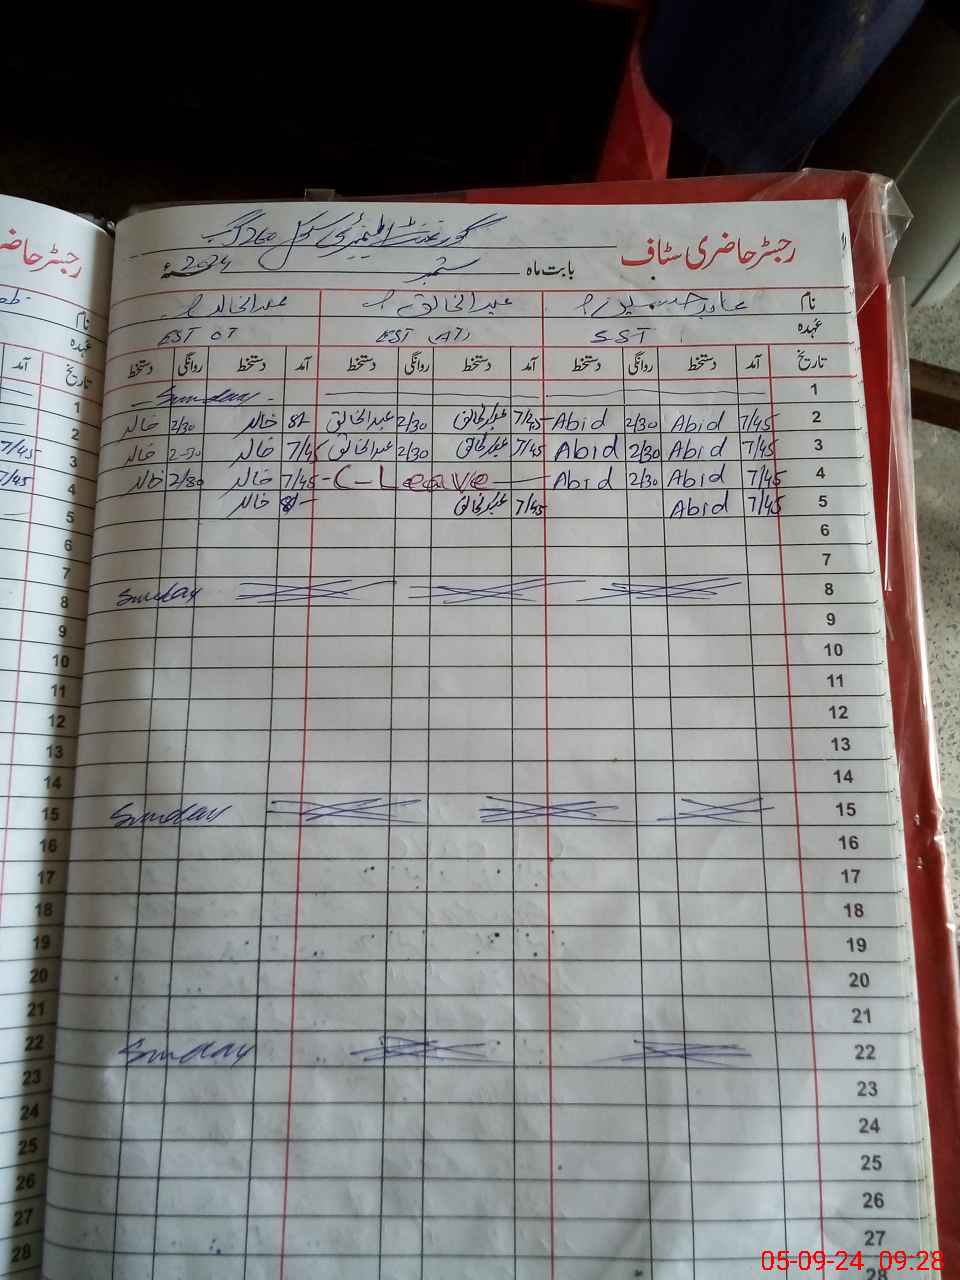 رجسٹر حاضری سٹاف
گورنمنٹ ایلیمنٹری سکول 260 گ ب
بابت ماہ ستمبر 2024ء
نام عبدالخالق عبدالخالد
عہدہ SST EST (AT) EST OT
تاریخ آمد دستخط روانگی دستخط آمد دستخط روانگی دستخط آمد دستخط روانگی دستخط
1 Sunday
2 7/45 Abid 2/30 Abid 7/45 عبدالخالق 2/30 عبدالخالق 8/- خالد 2/30 خالد
3 7/45 Abid 2/30 Abid 7/45 عبدالخالق 2/30 عبدالخالق 7/45 خالد 2-30 خالد
4 7/45 Abid 2/30 Abid C-Leave 7/45 خالد 2/30 خالد
5 7/45 Abid 7/45 عبدالخالق 8/- خالد
6
7
8 Sunday
9
10
11
12
13
14
15 Sunday
16
17
18
19
20
21
22 Sunday
23
24
25
26
27
28
رجسٹر حاضر
نام
عہدہ
تاریخ آمد
1
2
3 7/45
4 7/45
5
6
7
8
9
10
11
12
13
14
15
16
17
18
19
20
21
22
23
24
25
26
27
28
05-09-24 09:28